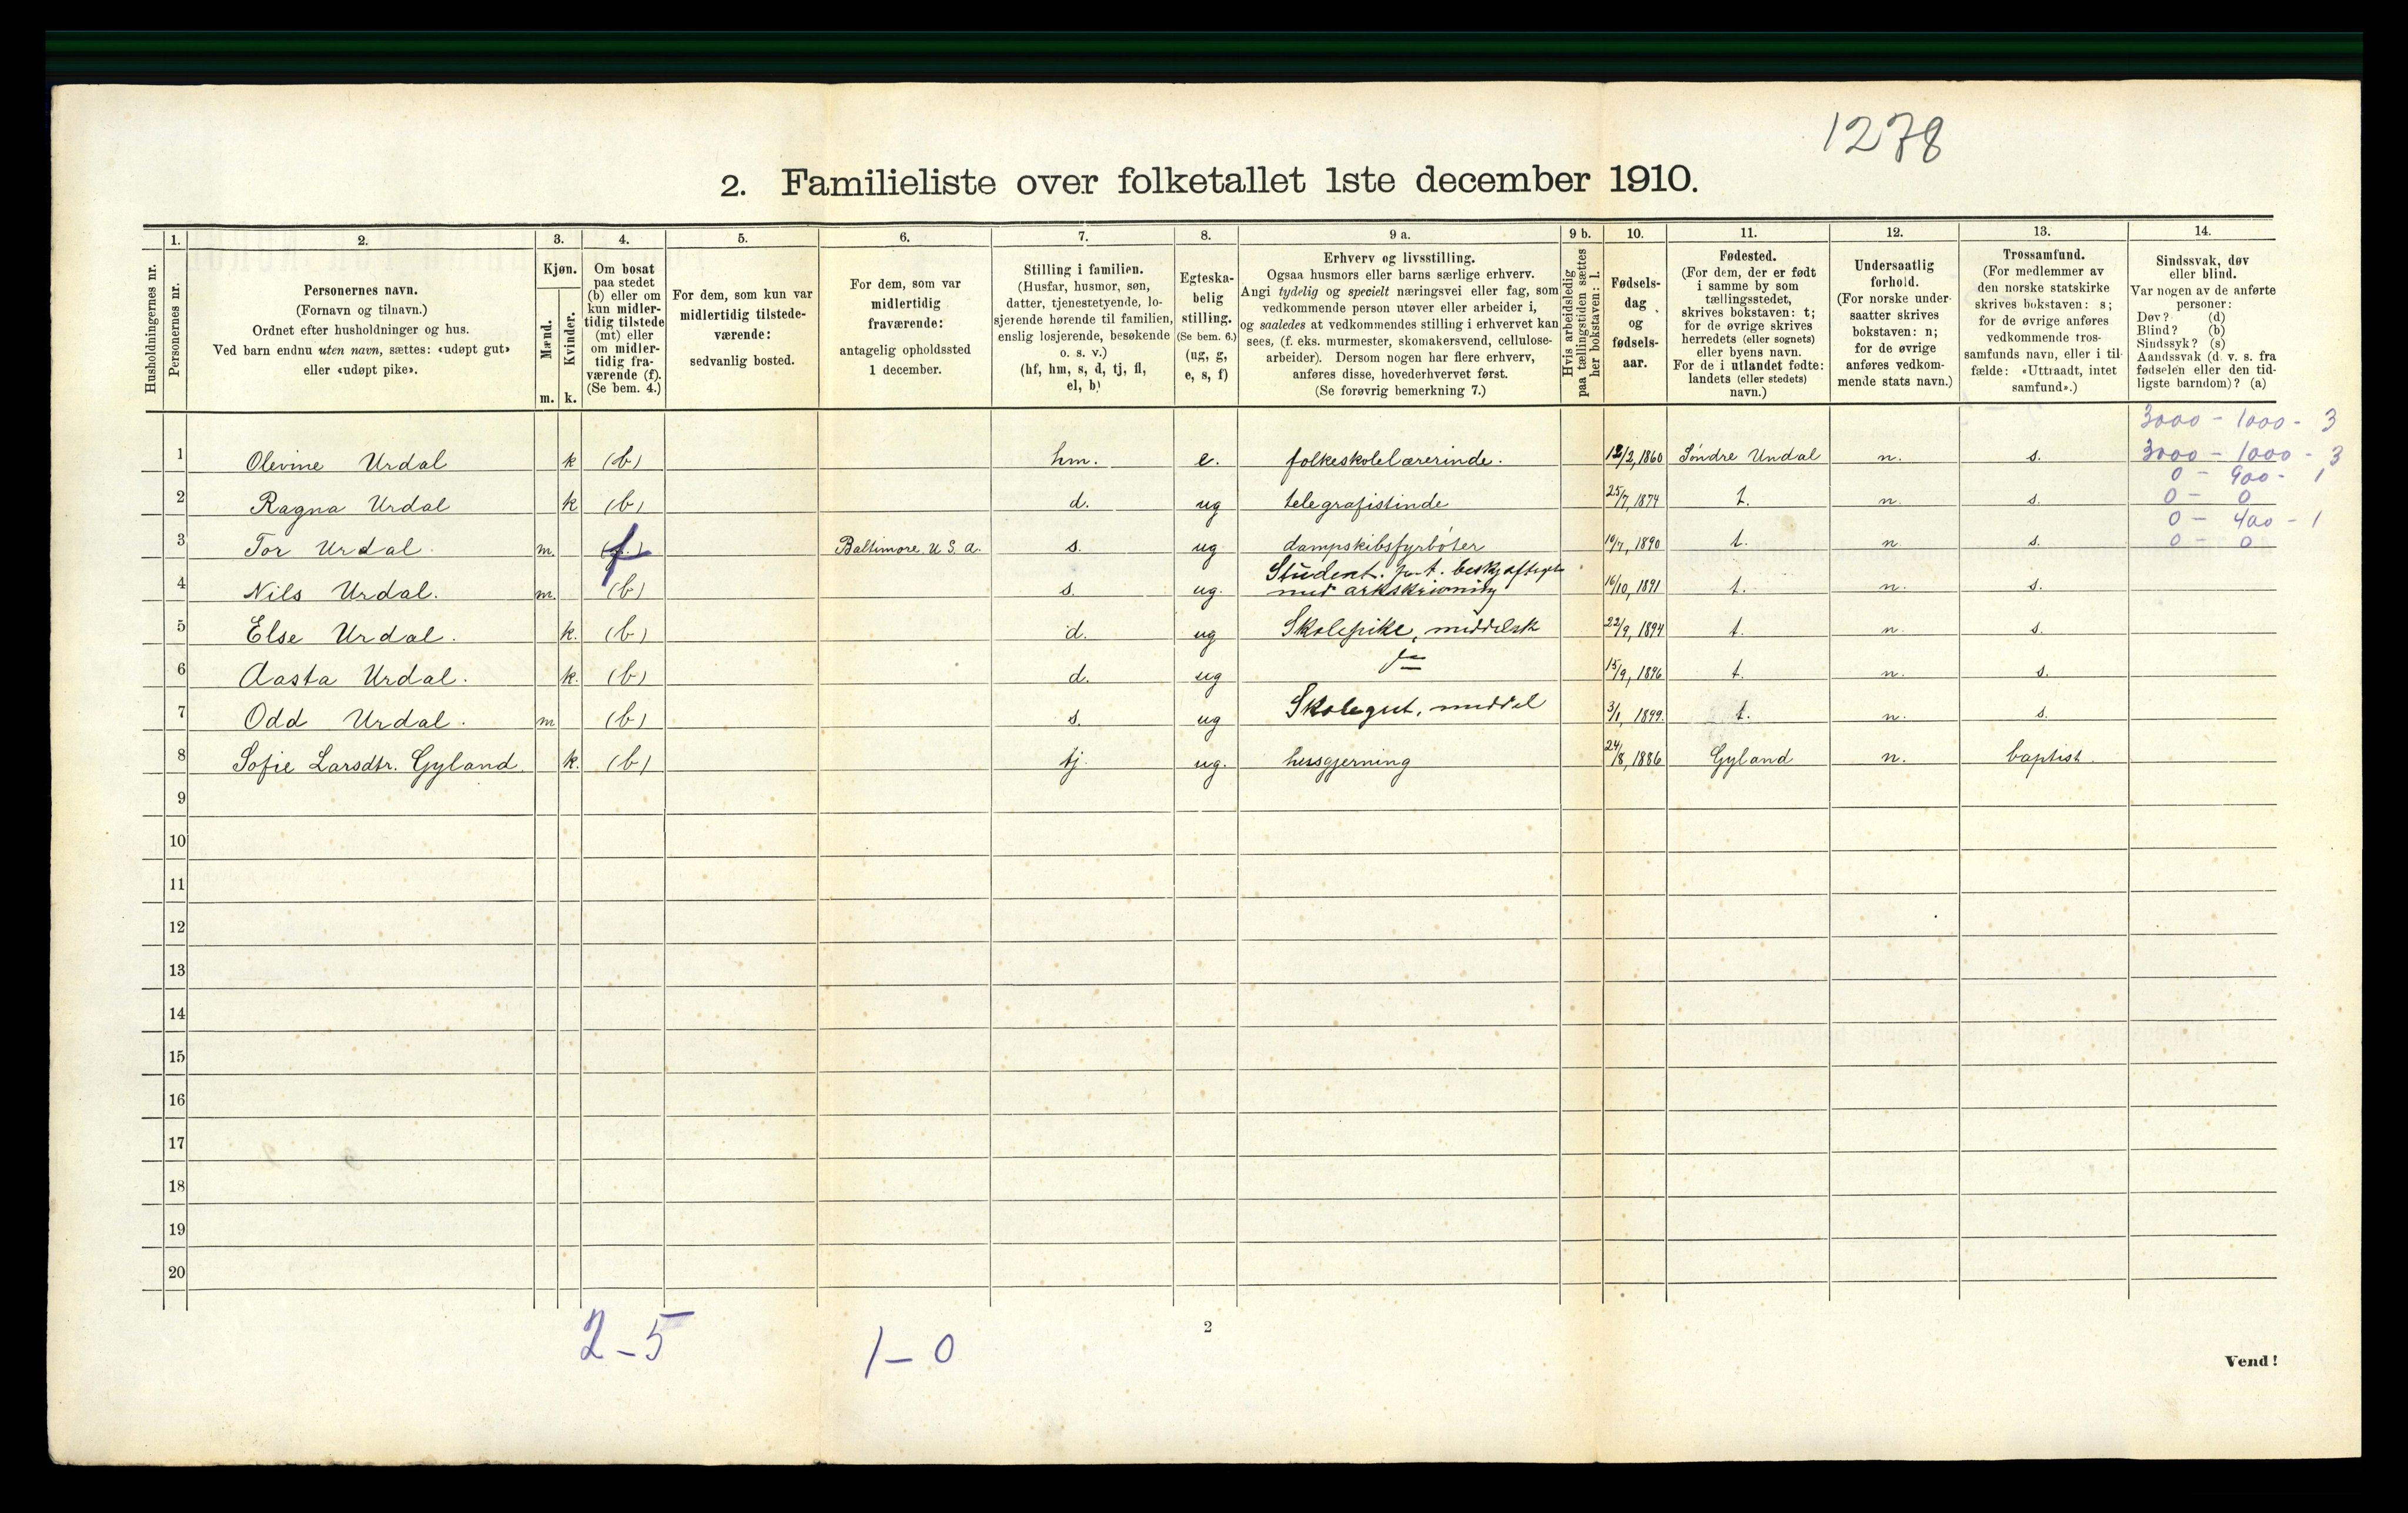 1278
2. Familieliste over folketallet 1ste december 1910.
Husholdningernes nr.
1.
Personernes nr.
2.
Personernes navn.
(Fornavn og tilnavn.)
Ordnet efter husholdninger og hus.
Ved barn endnu uten navn, sættes: «udøpt gut»
eller «udøpt pike».
3.
Kjøn.
Mænd.
Kvinder.
m. k.
4.
Om bosat
paa stedet
(b) eller om
kun midler-
tidig tilstede
(mt) eller
om midler-
tidig fra-
værende (f).
(Se bem. 4.)
5.
For dem, som kun var
midlertidig tilstede-
værende:
sedvanlig bosted.
6.
For dem, som var
midlertidig
fraværende:
antagelig opholdssted
1 december.
7.
Stilling i familien.
(Husfar, husmor, søn,
datter, tjenestetyende, lo-
sjerende hørende til familien,
enslig losjerende, besøkende
o. s. v.)
(hf, hm, s, d, tj, fl,
el, b)
8.
Egteska-
belig
stilling.
(Se bem. 6.)
(ug, g,
e, s, f)
9 a.
Erhverv og livsstilling.
Ogsaa husmors eller barns særlige erhverv.
Angi tydelig og specielt næringsvei eller fag, som
vedkommende person utøver eller arbeider i,
og saaledes at vedkommendes stilling i erhvervet kan
sees, (f. eks. murmester, skomakersvend, cellulose-
arbeider). Dersom nogen har flere erhverv,
anføres disse, hovederhvervet først.
(Se forøvrig bemerkning 7.)
9 b.
Hvis arbeidsledig
paa tællingstiden sættes
her bokstaven: l.
10.
Fødsels-
dag
og
fødsels-
aar.
11.
Fødested.
(For dem, der er født
i samme by som
tællingsstedet,
skrives bokstaven: t;
for de øvrige skrives
herredets (eller sognets)
eller byens navn.
For de i utlandet fødte:
landets (eller stedets)
navn.)
12.
Undersaatlig
forhold.
(For norske under-
saatter skrives
bokstaven: n;
for de øvrige
anføres vedkom-
mende stats navn.)
13.
Trossamfund.
(For medlemmer av
den norske statskirke
skrives bokstaven: s;
for de øvrige anføres
vedkommende tros-
samfunds navn, eller i til-
fælde: «Uttraadt, intet
samfund».)
14.
Sindssvak, døv
eller blind.
Var nogen av de anførte
personer:
Døv? (d)
Blind? (b)
Sindssyk? (s)
Aandssvak (d. v. s. fra
fødselen eller den tid-
ligste barndom)? (a)
3000 - 1000 - 3
1 Olevine Urdal k (b) hm. e. folkeskolelærerinde. /2, 1860 Søndre Undal n. s. 3000 - 1000 - 3
0 - 900 - 1
2 Ragna Urdal k (b) d. ug telegrafistinde 25/7, 1874 t. n. s. 0 - 0
0 - 400 - 1
3 Tor Urdal. m. f Baltimore. U S. a. s. ug dampskibsfyrbøter 10/7, 1890 t. n. s. 0 - 0
4 Nils Urdal. m. (b) s. ug. Student. p.t. beskjæftiget
med arkskrivning 16/10, 1891 t. n. s.
5 Else Urdal. k. (b) d. ug Skolepike, middelsk 22/9, 1894 t. n. s.
6 Aasta Urdal. k. (b) d. ug 15/9, 1896 t. n. s.
7 Odd Urdal. m (b) s. ug Skolegut, middel 3/1, 1899. t. n. s.
8 Sofie Larsdtr. Gyland. k. (b) tj. ug. husgjerning 24/8, 1886 Gyland n. baptist.
9
10
11
12
13
14
15
16
17
18
19
20
2 - 5
1 - 0
2
Vend!